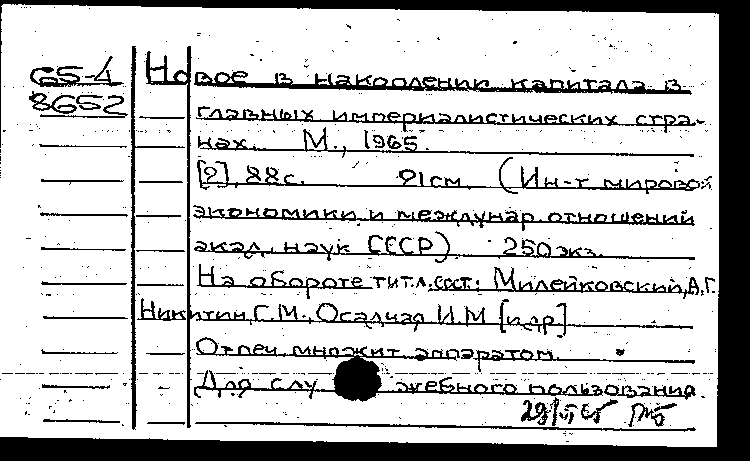 65-4 Новое в накоплении капитала в
8652 главных империалистических стра-
нах. М., 1965.
[2], 88 с. 21 см. (Ин-т мировой
экономики и междунар. отношений
акад. наук СССР) 250 экз.
На обороте тит.л. сост.: Милейковский, А.Г.
Никитин, С.М., Осадчая И.М [и др]
Отпеч. множит аппаратом.
Для служебного пользования.